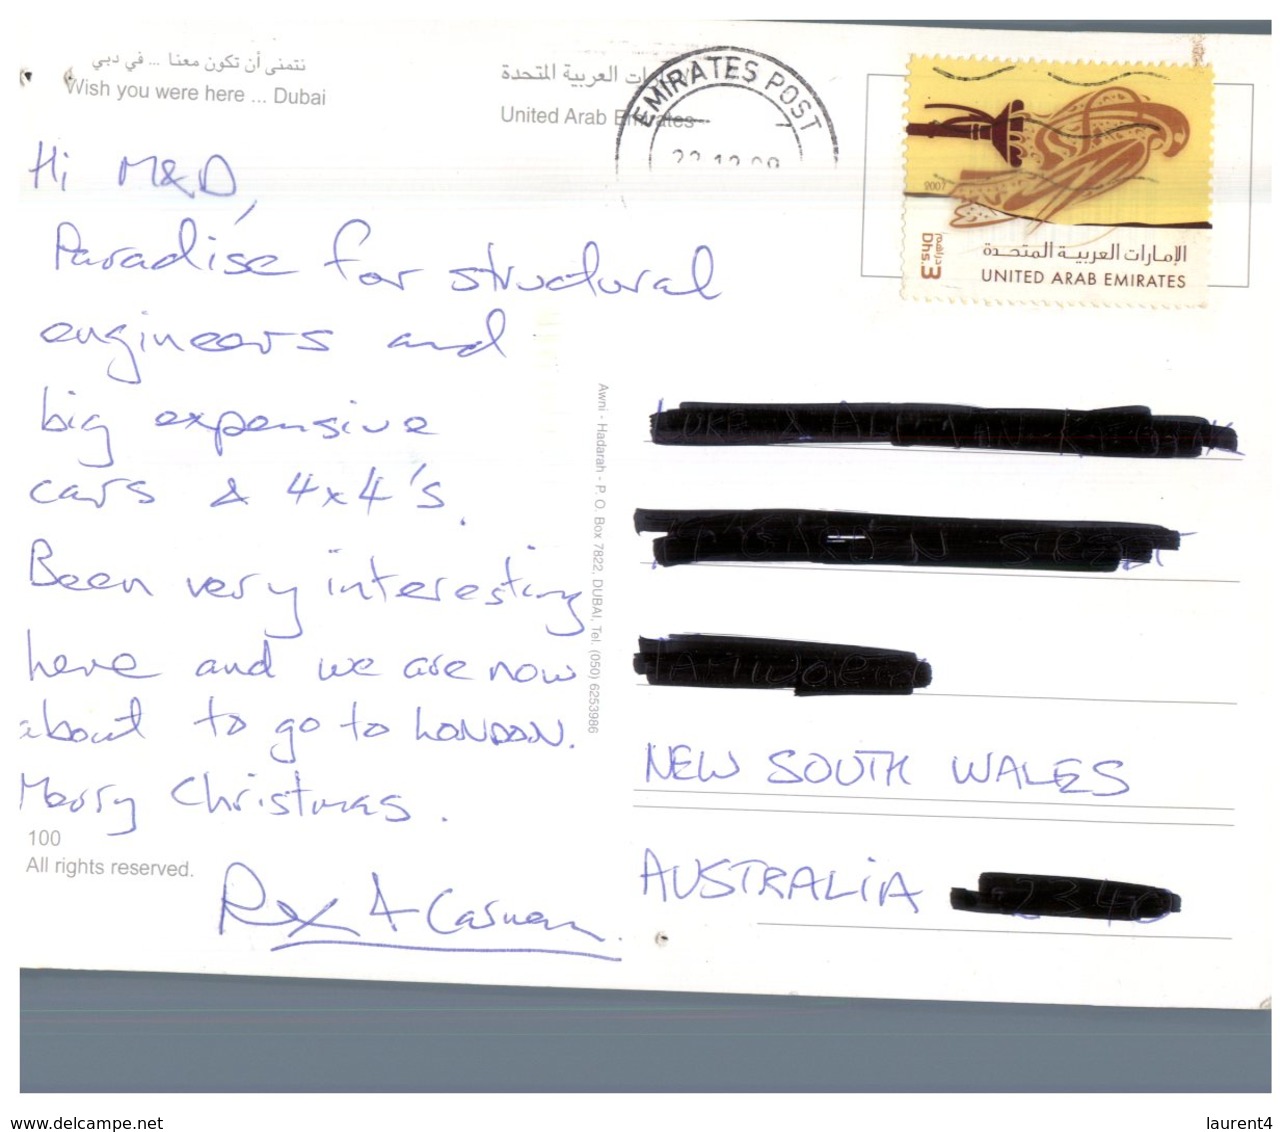 نتمنى أن تكون معنا ... في دبي
Wish you were here ... Dubai
العربية المتحدة
United Arab Emirates
EMIRATES POST
2007
3 دراهم
Dhs.3
الإمارات العربية المتحدة
UNITED ARAB EMIRATES
Hi M&D,
Paradise for structural
engineers and
big expensive
cars & 4x4's.
Been very interesting
here and we are now
about to go to LONDON.
Merry Christmas.
100
All rights reserved.
Awni - Hadarah - P. O. Box 7822, DUBAI, Tel. (050) 6253986
NEW SOUTH WALES
AUSTRALIA
www.delcampe.net
laurent4